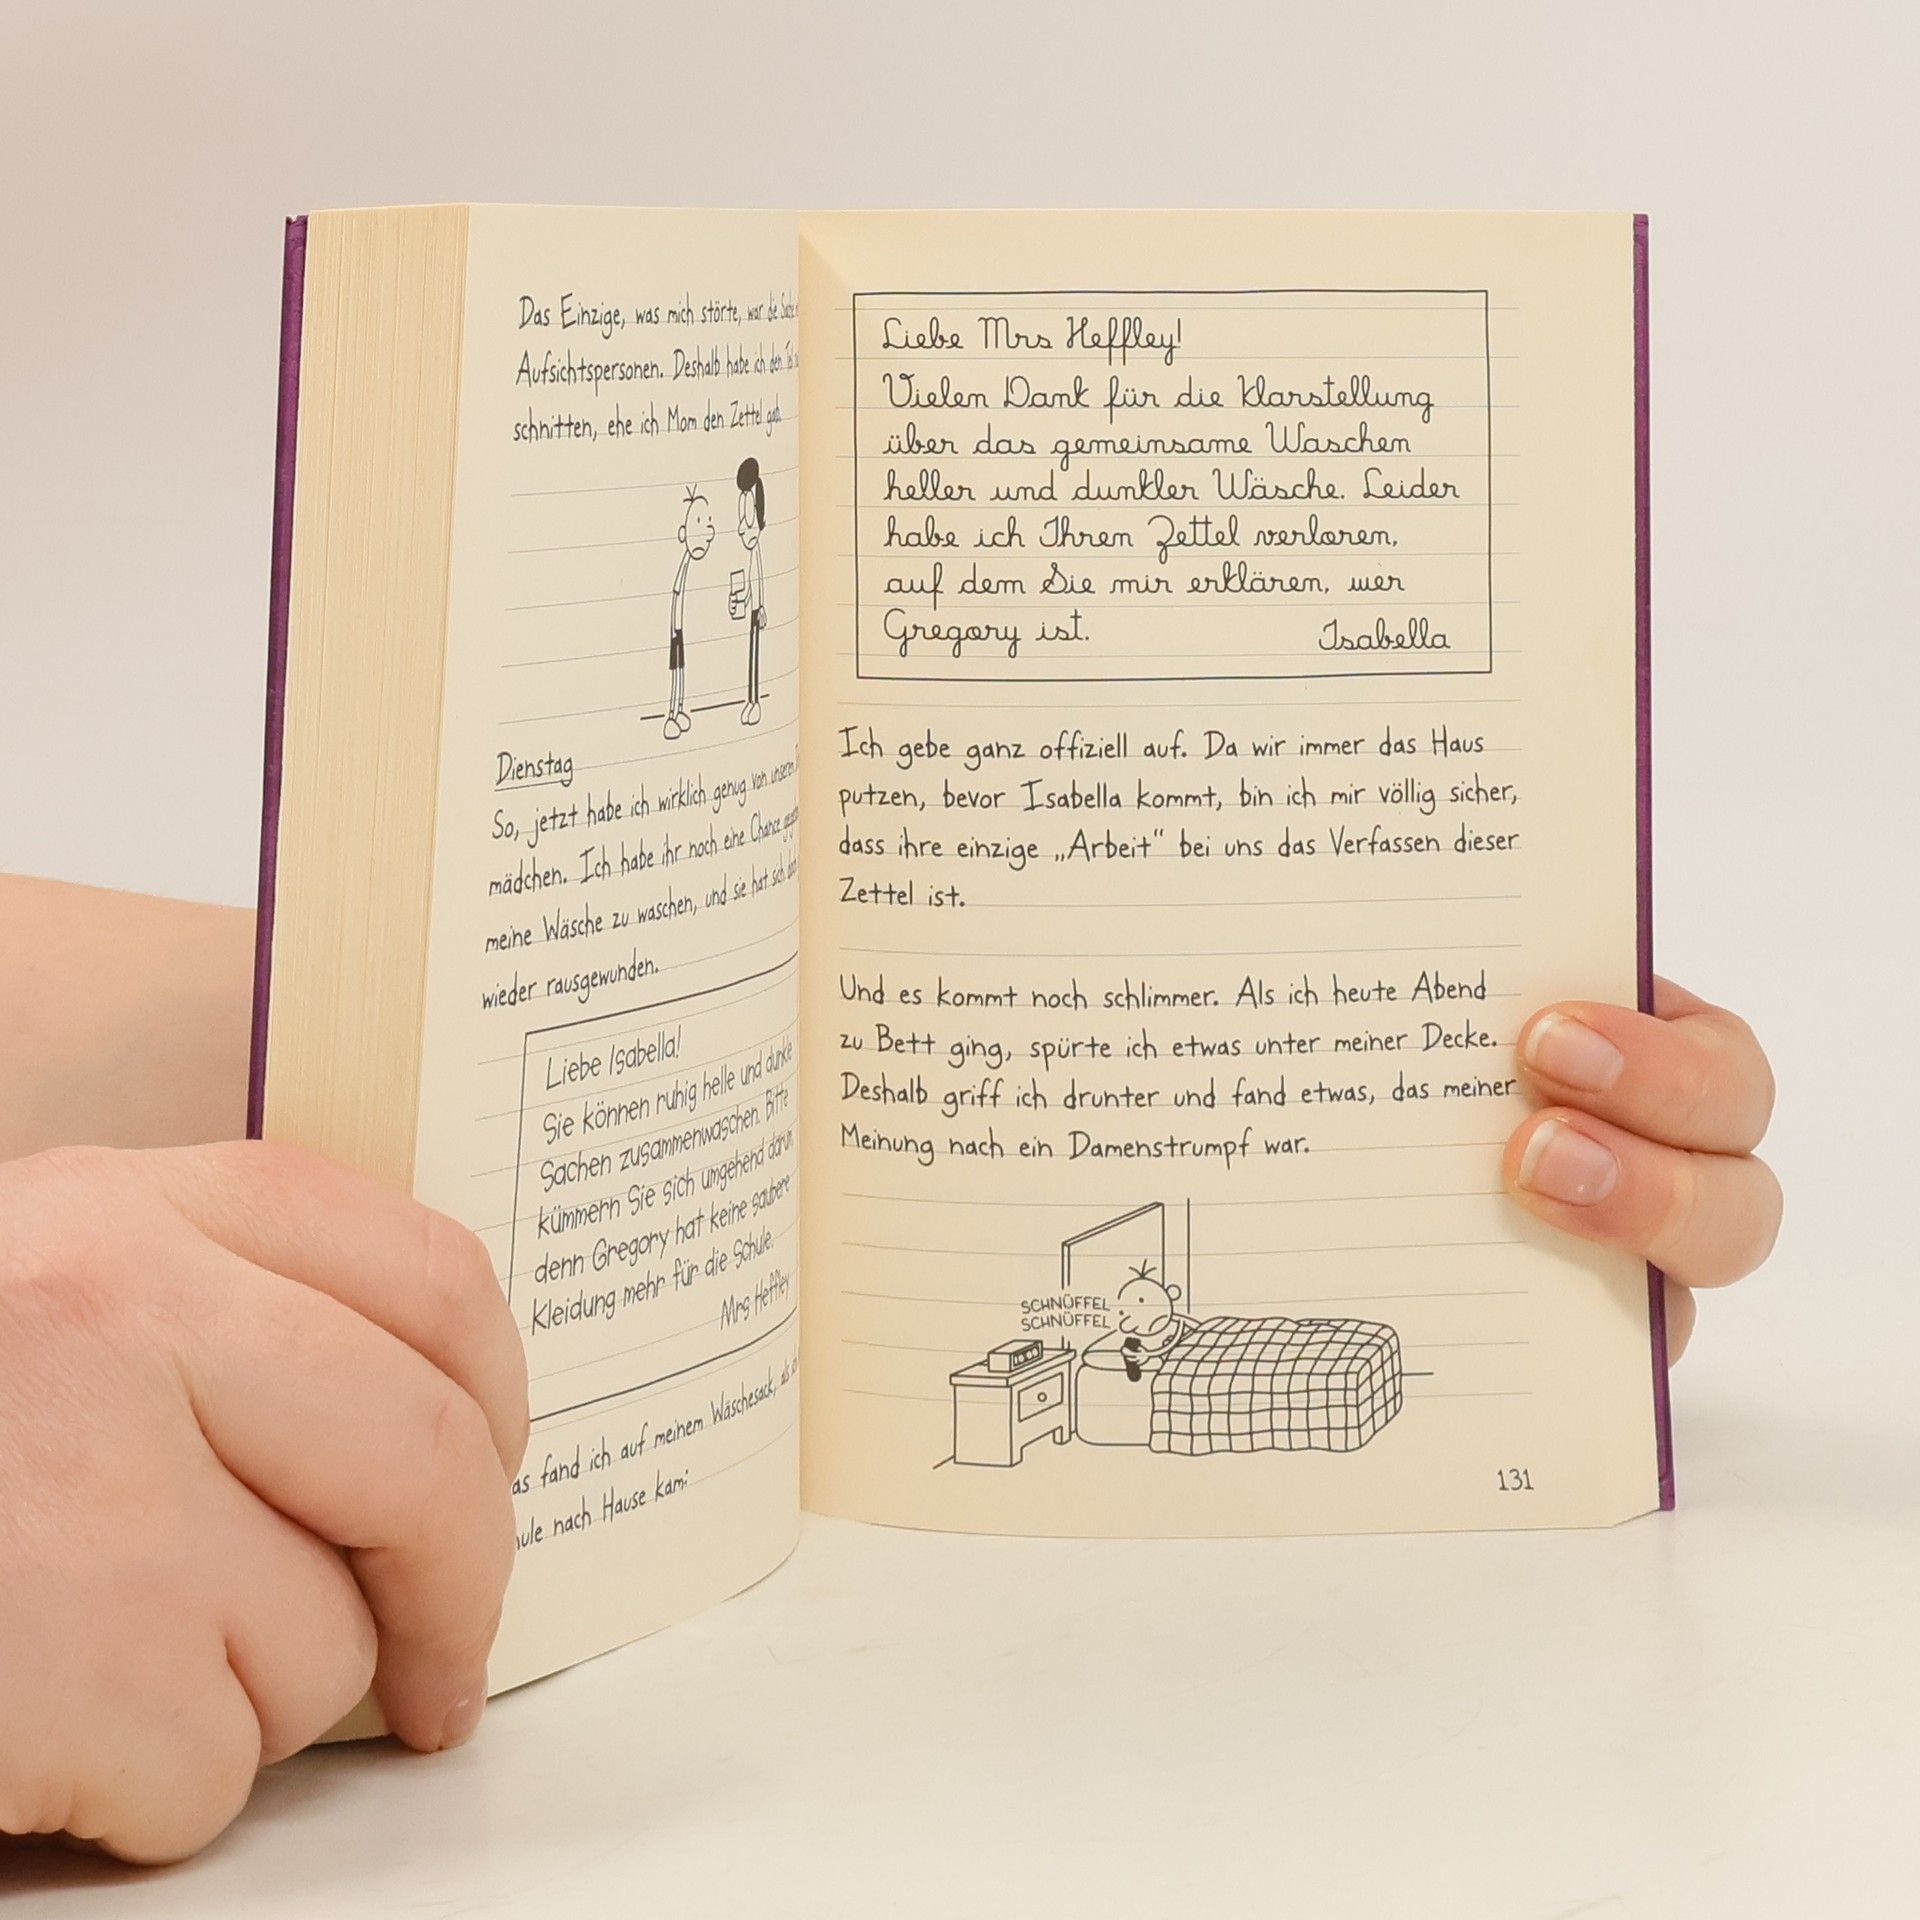 Das Einzige, was mich störte, war die
Aufsichtspersonen. Deshalb habe ich den
schnitten, ehe ich Mom den Zettel gab.
Dienstag
So, jetzt habe ich wirklich genug von unserem
mädchen. Ich habe ihr noch eine Chance
meine Wäsche zu waschen, und sie hat sich
wieder rausgewunden.
Liebe Isabella!
Sie können ruhig helle und dunkle
Sachen zusammenwaschen. Bitte
kümmern Sie sich umgehend darum
denn Gregory hat keine saubere
Kleidung mehr für die Schule.
Mrs Heffley
as fand ich auf meinem Wäschesack, als
ule nach Hause kam:
Liebe Mrs Heffley!
Vielen Dank für die Klarstellung
über das gemeinsame Waschen
heller und dunkler Wäsche. Leider
habe ich Ihren Zettel verloren,
auf dem Sie mir erklären, wer
Gregory ist. Isabella
Ich gebe ganz offiziell auf. Da wir immer das Haus
putzen, bevor Isabella kommt, bin ich mir völlig sicher,
dass ihre einzige „Arbeit“ bei uns das Verfassen dieser
Zettel ist.
Und es kommt noch schlimmer. Als ich heute Abend
zu Bett ging, spürte ich etwas unter meiner Decke.
Deshalb griff ich drunter und fand etwas, das meiner
Meinung nach ein Damenstrumpf war.
SCHNÜFFEL
SCHNÜFFEL
131